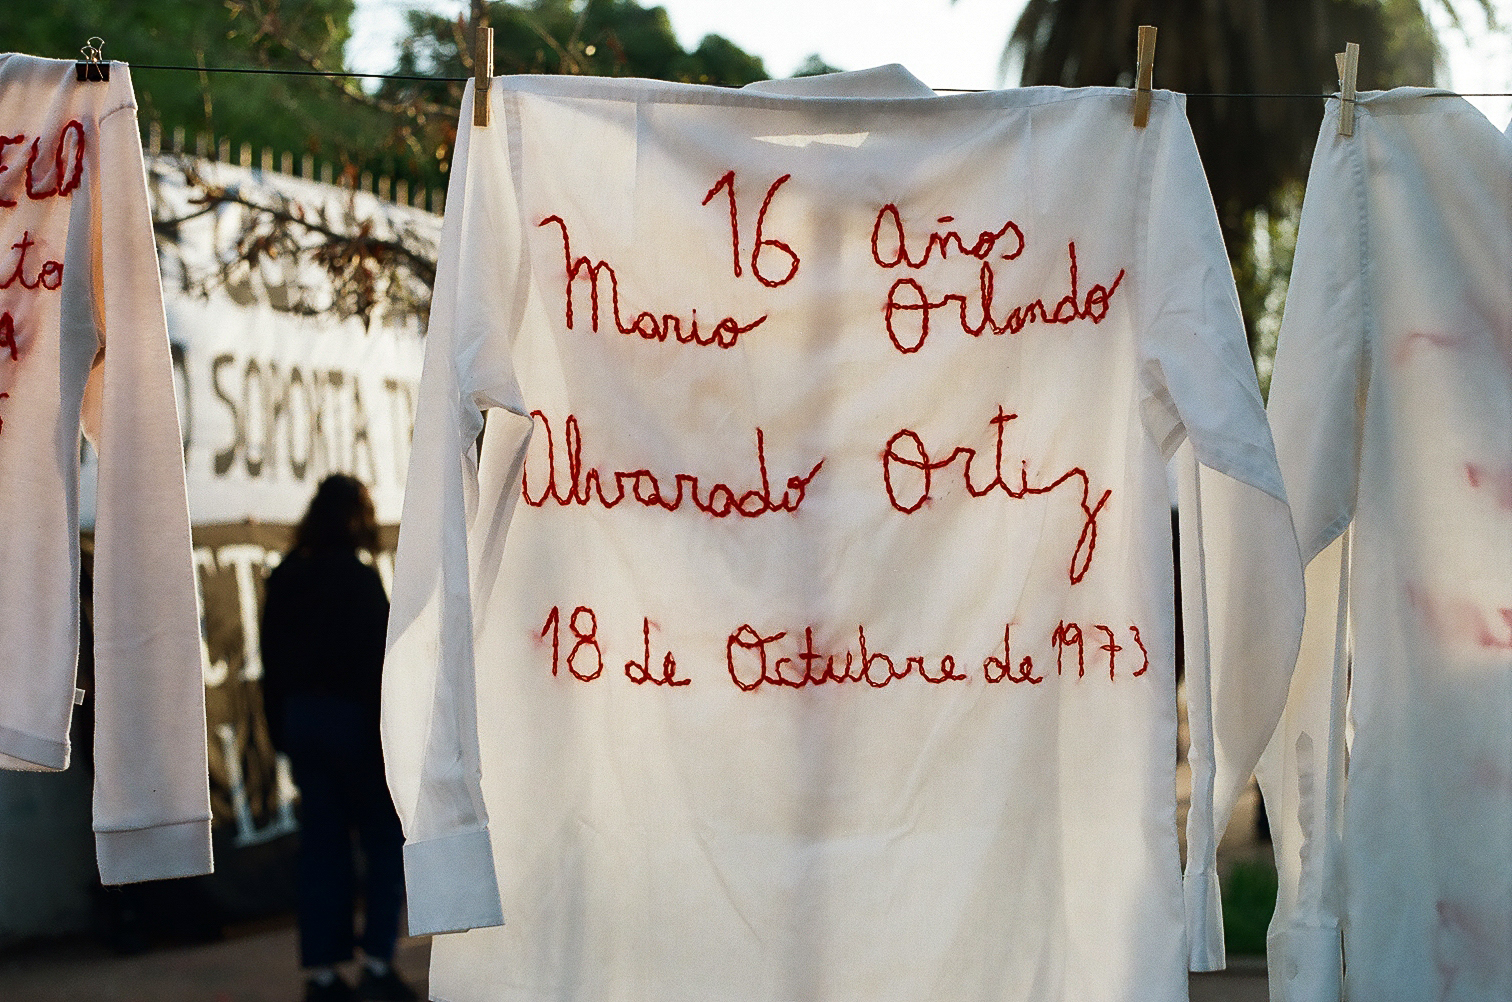 16 Años
Mario Orlando
Alvarado Ortiz
18 de Octubre de 1973
ELO
to
a
SOPORTA